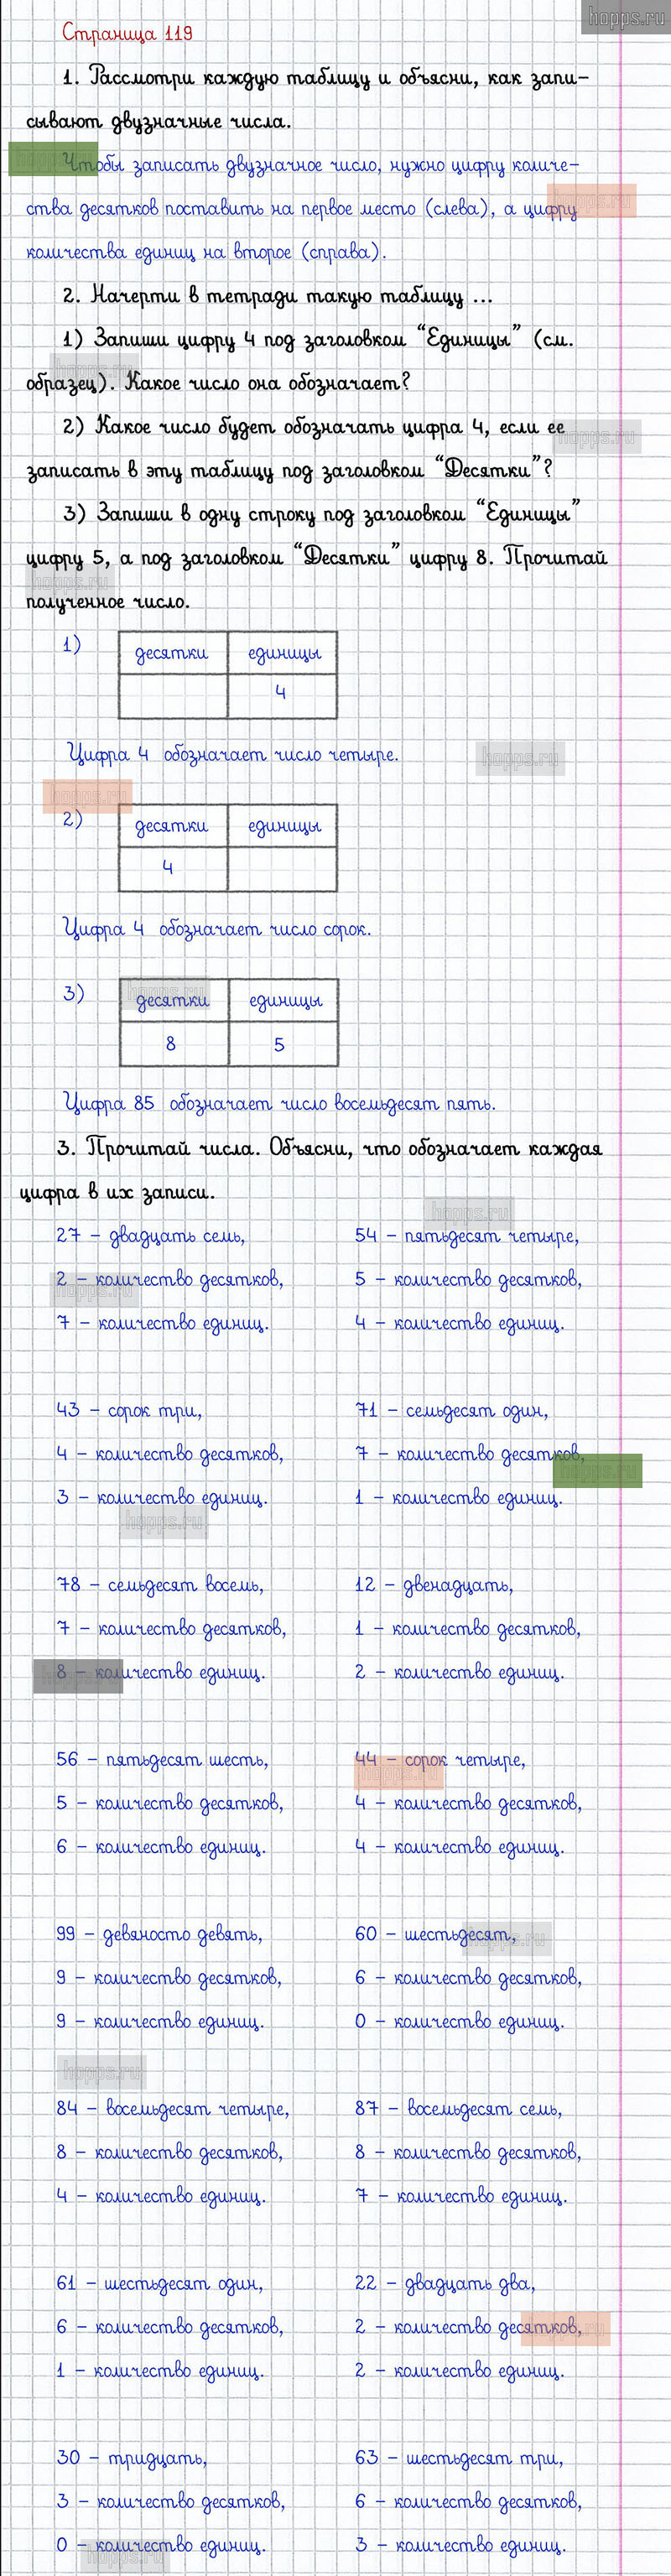 hopps.ru
Страница 119
1. Рассмотри каждую таблицу и объясни, как запи-
сывают двузначные числа.
Чтобы записать двузначное число, нужно цифру количе-
ства десятков поставить на первое место (слева), а цифру
количества единиц на второе (справа).
2. Начерти в тетради такую таблицу ...
1) Запиши цифру 4 под заголовком “Единицы” (см.
образец). Какое число она обозначает?
2) Какое число будет обозначать цифра 4, если ее
записать в эту таблицу под заголовком “Десятки”?
3) Запиши в одну строку под заголовком “Единицы”
цифру 5, а под заголовком “Десятки” цифру 8. Прочитай
полученное число.
1) десятки единицы
4
Цифра 4 обозначает число четыре.
2) десятки единицы
4
Цифра 4 обозначает число сорок.
3) десятки единицы
8 5
Цифра 85 обозначает число восемьдесят пять.
3. Прочитай числа. Объясни, что обозначает каждая
цифра в их записи.
27 – двадцать семь, 54 – пятьдесят четыре,
2 – количество десятков, 5 – количество десятков,
7 – количество единиц. 4 – количество единиц.
43 – сорок три, 71 – семьдесят один,
4 – количество десятков, 7 – количество десятков,
3 – количество единиц. 1 – количество единиц.
78 – семьдесят восемь, 12 – двенадцать,
7 – количество десятков, 1 – количество десятков,
8 – количество единиц. 2 – количество единиц.
56 – пятьдесят шесть, 44 – сорок четыре,
5 – количество десятков, 4 – количество десятков,
6 – количество единиц. 4 – количество единиц.
99 – девяносто девять, 60 – шестьдесят,
9 – количество десятков, 6 – количество десятков,
9 – количество единиц. 0 – количество единиц.
84 – восемьдесят четыре, 87 – восемьдесят семь,
8 – количество десятков, 8 – количество десятков,
4 – количество единиц. 7 – количество единиц.
61 – шестьдесят один, 22 – двадцать два,
6 – количество десятков, 2 – количество десятков,
1 – количество единиц. 2 – количество единиц.
30 – тридцать, 63 – шестьдесят три,
3 – количество десятков, 6 – количество десятков,
0 – количество единиц. 3 – количество единиц.